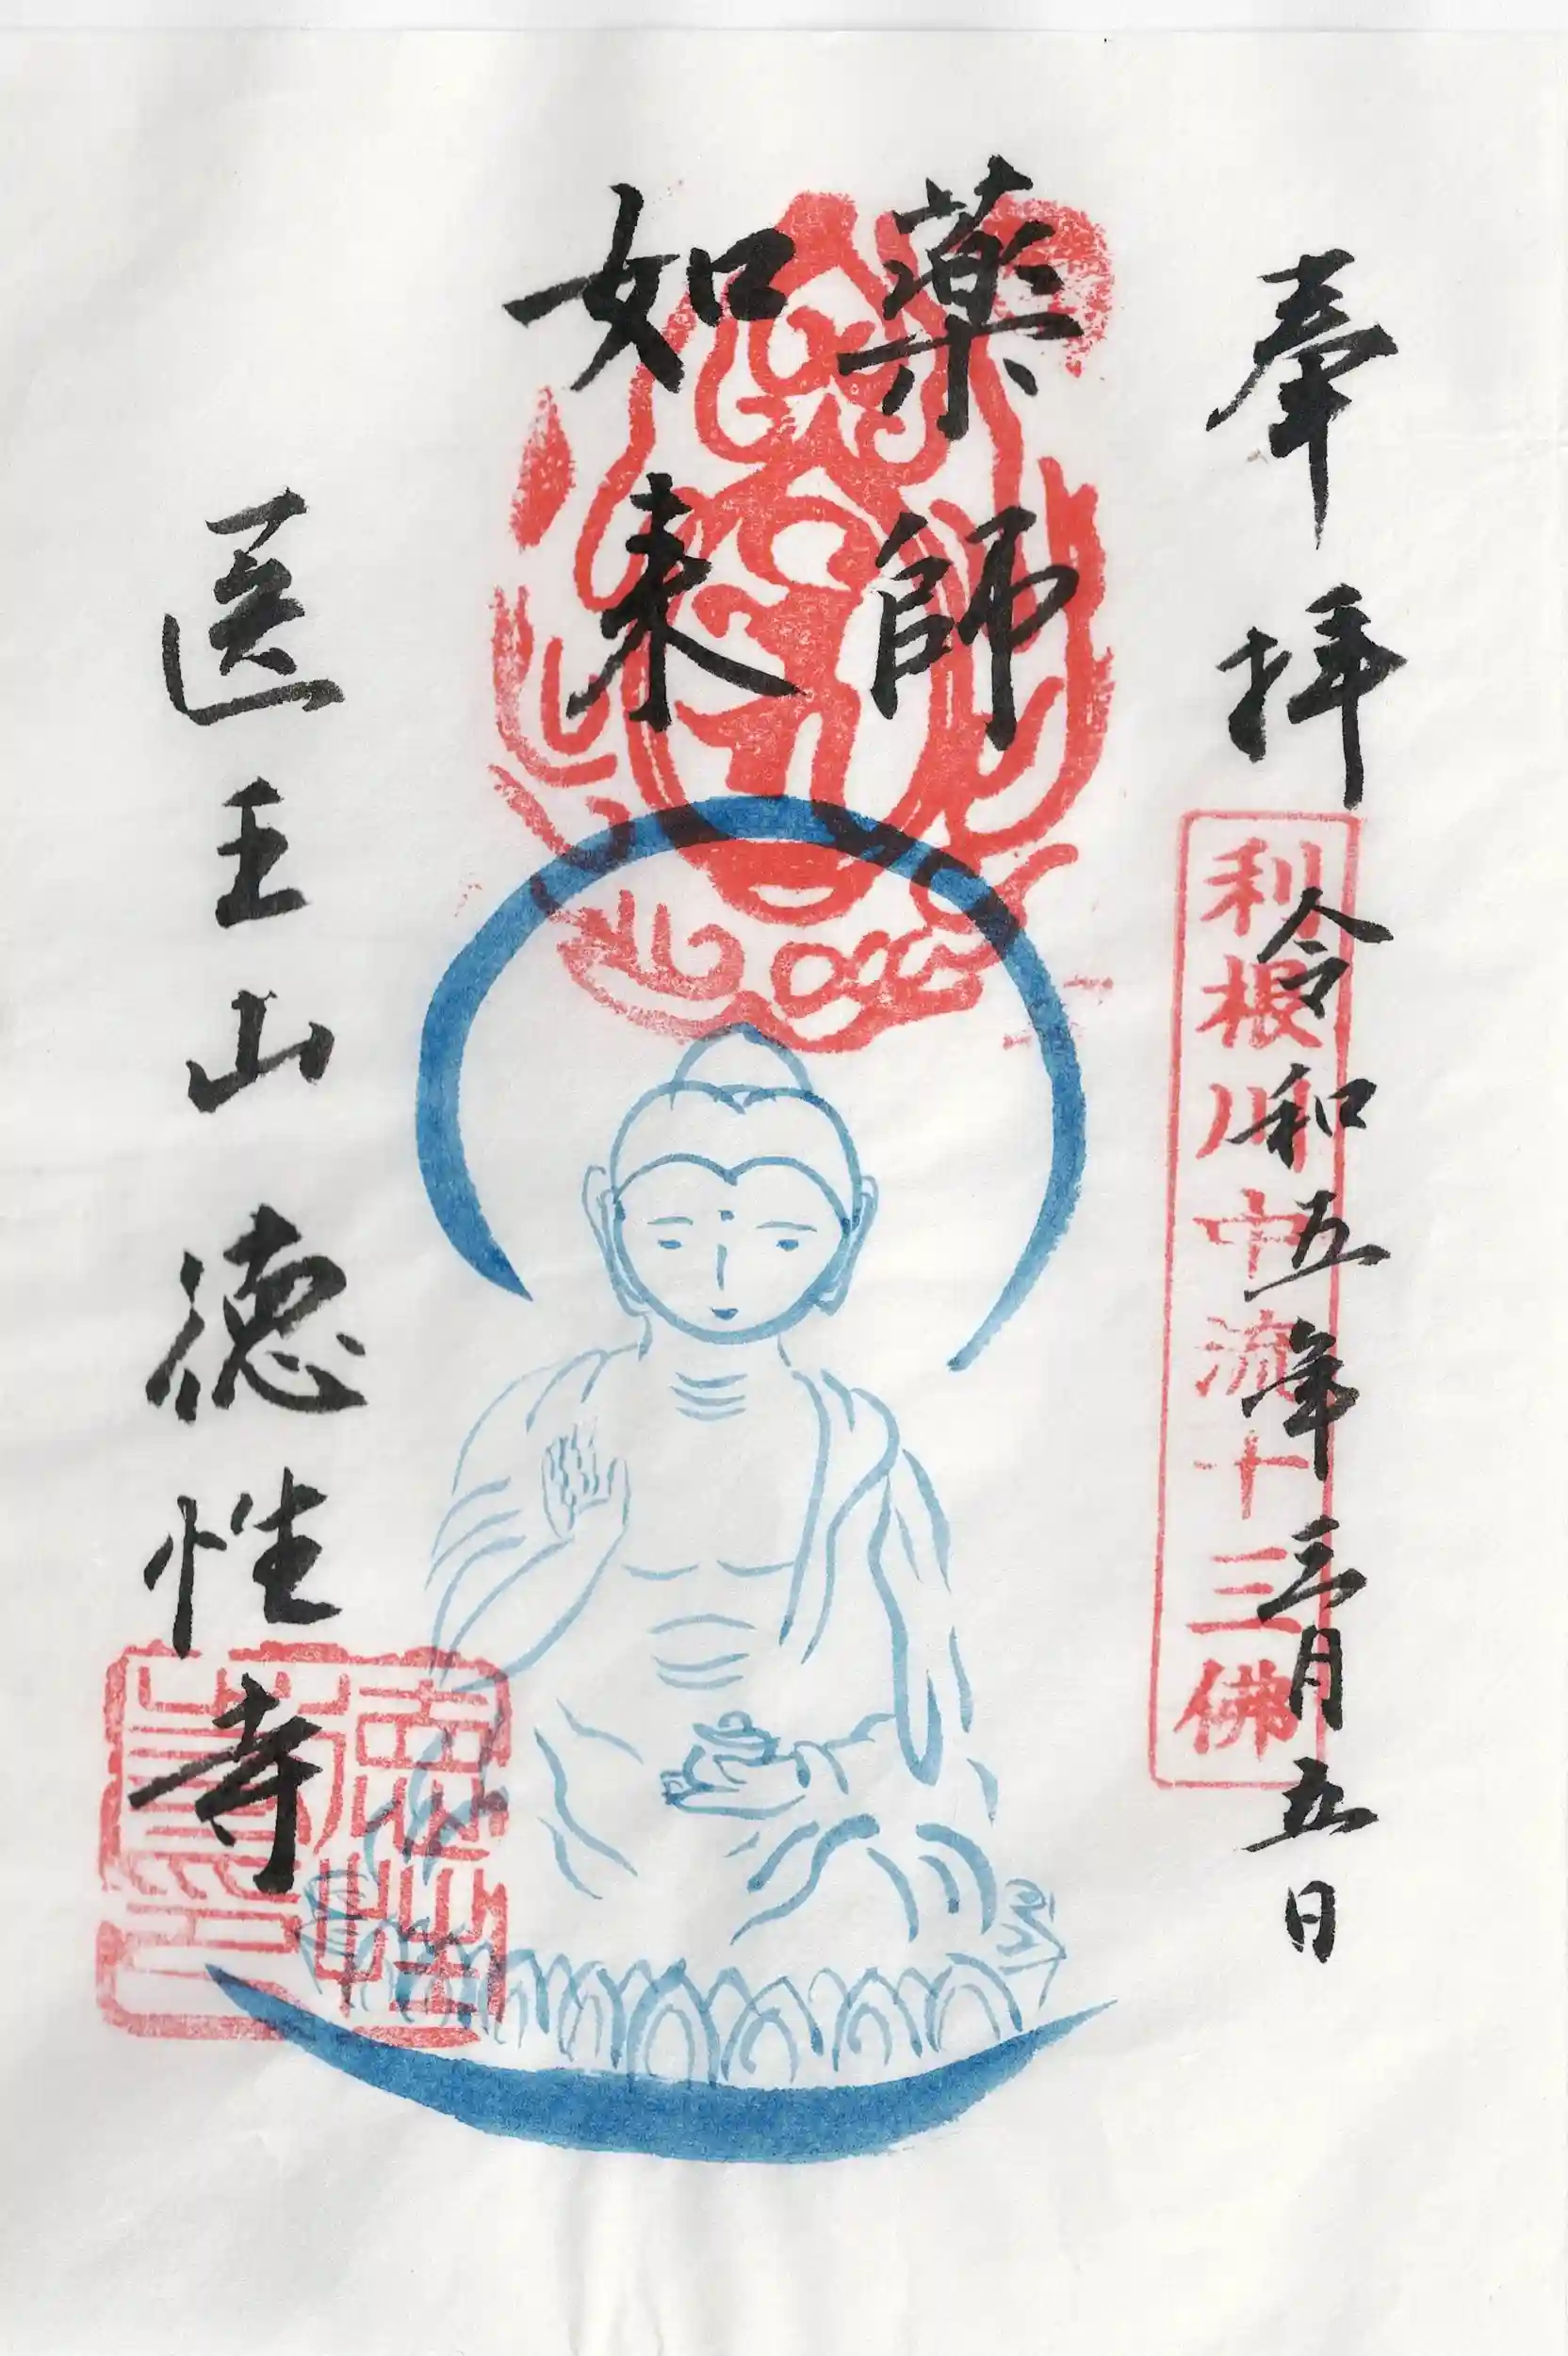 奉拝
令和五年三月五日
利根川中流十三佛
薬師
如来
医王山徳性寺